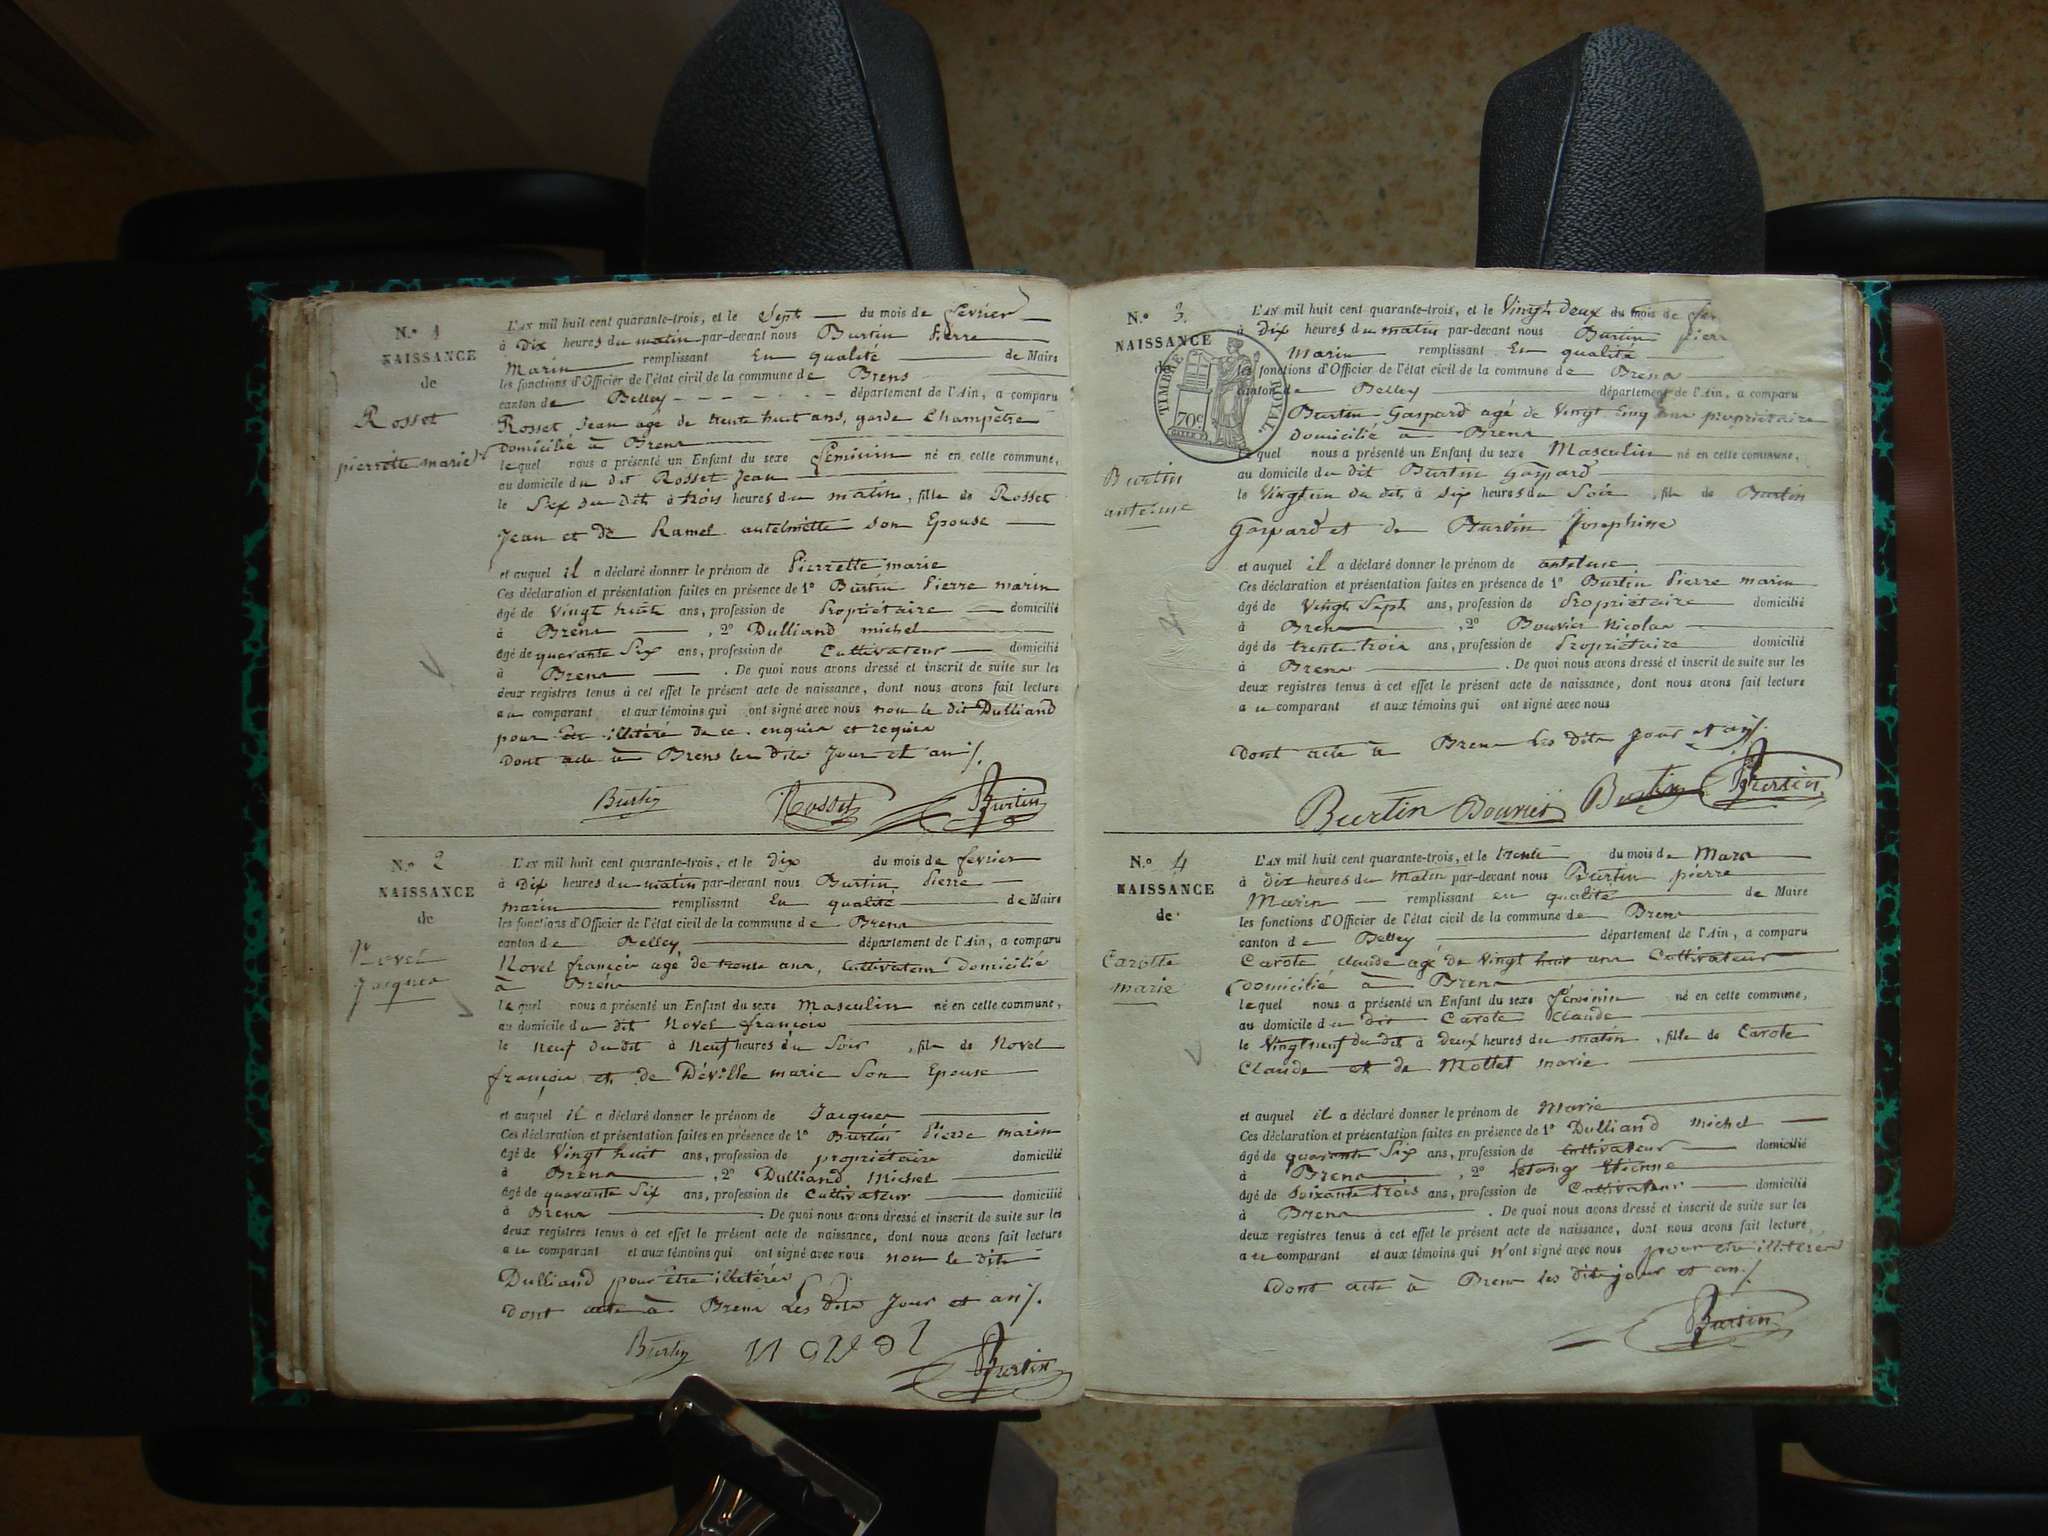 N.º 1
NAISSANCE
de
Rosset
pierrette marie
L'AN mil huit cent quarante-trois, et le Sept du mois de fevrier
à Dix heures du matin par-devant nous Burtin Pierre
Marin remplissant En qualité de Maire
les fonctions d'Officier de l'état civil de la commune de Brens
canton de Belley département de l'Ain, a comparu
Rosset Jean agé de trente huit ans, garde Champêtre
Domicilié à Brens
lequel nous a présenté un Enfant du sexe féminin né en cette commune,
au domicile du dit Rosset Jean
le Six du dit à trois heures du matin, fille de Rosset
Jean et de Ramel antelmette son Epouse
et auquel il a déclaré donner le prénom de Pierrette marie
Ces déclaration et présentation faites en présence de 1º Burtin Pierre marin
âgé de Vingt huit ans, profession de Propriétaire domicilié
à Brens, 2º Dulliand michel
âgé de quarante Six ans, profession de Cultivateur domicilié
à Brens. De quoi nous avons dressé et inscrit de suite sur les
deux registres tenus à cet effet le présent acte de naissance, dont nous avons fait lecture
au comparant et aux témoins qui ont signé avec nous non le dit Dulliand
pour être illitéré de ce enquis et requis
Dont acte à Brens les dits Jour et an
Burtin Rosset Burtin
N.º 2
NAISSANCE
de
Novel
Jacques
L'AN mil huit cent quarante-trois, et le dix du mois de fevrier
à Dix heures du matin par-devant nous Burtin Pierre
marin remplissant En qualité de Maire
les fonctions d'Officier de l'état civil de la commune de Brens
canton de Belley département de l'Ain, a comparu
Novel françois agé de trente ans, Cultivateur Domicilié
à Brens
lequel nous a présenté un Enfant du sexe Masculin né en cette commune,
au domicile du dit Novel françois
le Neuf du dit à Neuf heures du Soir, fils de Novel
françois et de Déville marie Son Epouse
et auquel il a déclaré donner le prénom de Jacques
Ces déclaration et présentation faites en présence de 1º Burtin Pierre marin
âgé de Vingt huit ans, profession de propriétaire domicilié
à Brens, 2º Dulliand Michel
âgé de quarante Six ans, profession de Cultivateur domicilié
à Brens. De quoi nous avons dressé et inscrit de suite sur les
deux registres tenus à cet effet le présent acte de naissance, dont nous avons fait lecture
au comparant et aux témoins qui ont signé avec nous non le dite
Dulliand pour être illitérés
Dont acte à Brens Les dits Jour et an
Burtin Novel Burtin
N.º 3
NAISSANCE
de
TIMBRE ROYAL
70c
Burtin
antelme
L'AN mil huit cent quarante-trois, et le Vingt deux du mois de fev
à Dix heures du matin par-devant nous Burtin pierr
Marin remplissant En qualité
les fonctions d'Officier de l'état civil de la commune de Brens
canton de Belley département de l'Ain, a comparu
Burtin Gaspard agé de Vingt cinq ans propriétaire
Domicilié à Brens
lequel nous a présenté un Enfant du sexe Masculin né en cette commune,
au domicile du dit Burtin Gaspard
le Vingt un du dit à six heures du Soir, fils de Burtin
Gaspard et de Burtin Josephine
et auquel il a déclaré donner le prénom de antelme
Ces déclaration et présentation faites en présence de 1º Burtin Pierre marin
âgé de Vingt Sept ans, profession de Propriétaire domicilié
à Brens, 2º Bouvier Nicolas
âgé de trente trois ans, profession de Propriétaire domicilié
à Brens. De quoi nous avons dressé et inscrit de suite sur les
deux registres tenus à cet effet le présent acte de naissance, dont nous avons fait lecture
au comparant et aux témoins qui ont signé avec nous
Dont acte à Brens les dits jour et an
Burtin Bouvier Burtin Burtin
N.º 4
NAISSANCE
de
Carotte
marie
L'AN mil huit cent quarante-trois, et le trente du mois de Mars
à dix heures du Matin par-devant nous Burtin pierre
Marin remplissant en qualité de Maire
les fonctions d'Officier de l'état civil de la commune de Brens
canton de Belley département de l'Ain, a comparu
Carote claude agé de vingt huit ans Cultivateur
domicilié à Brens
lequel nous a présenté un Enfant du sexe féminin né en cette commune,
au domicile du dit Carote Claude
le Vingt neuf du dit à deux heures du matin, fille de Carote
Claude et de Mottet marie
et auquel il a déclaré donner le prénom de Marie
Ces déclaration et présentation faites en présence de 1º Dulliand michel
âgé de quarante Six ans, profession de Cultivateur domicilié
à Brens, 2º Etienne
âgé de Soixante trois ans, profession de Cultivateur domicilié
à Brens. De quoi nous avons dressé et inscrit de suite sur les
deux registres tenus à cet effet le présent acte de naissance, dont nous avons fait lecture,
au comparant et aux témoins qui n'ont signé avec nous pour être illitérés
Dont acte à Brens les dits jour et an
Burtin